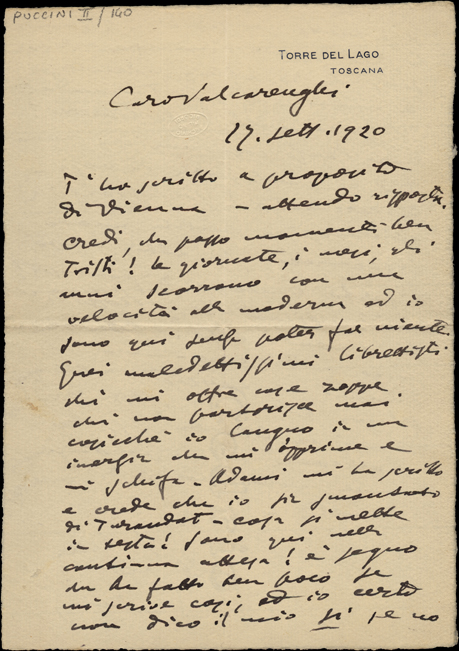 PUCCINI II / 140
TORRE DEL LAGO
TOSCANA
Caro Valcarenghi
27. sett. 1920
T'ho scritto a proposito
di Vienna – attendo risposta.
credi, che passo momenti ben
tristi! le giornate, i mesi, gli
anni scorrono con una
velocità alla moderna ed io
sono qui senza poter far niente.
Quei maledettissimi librettisti
chi mi offre cose zoppe
chi non partorisce mai
cosicchè io languo in un
inerzia che mi opprime e
mi schifa – Adami mi ha scritto
e crede che io sia smontato
di Turandot – cosa si mette
in testa! Sono qui nella
continua attesa! è segno
che ha fatto ben poco se
mi scrive così, ed io certo
non dico il mio si se no